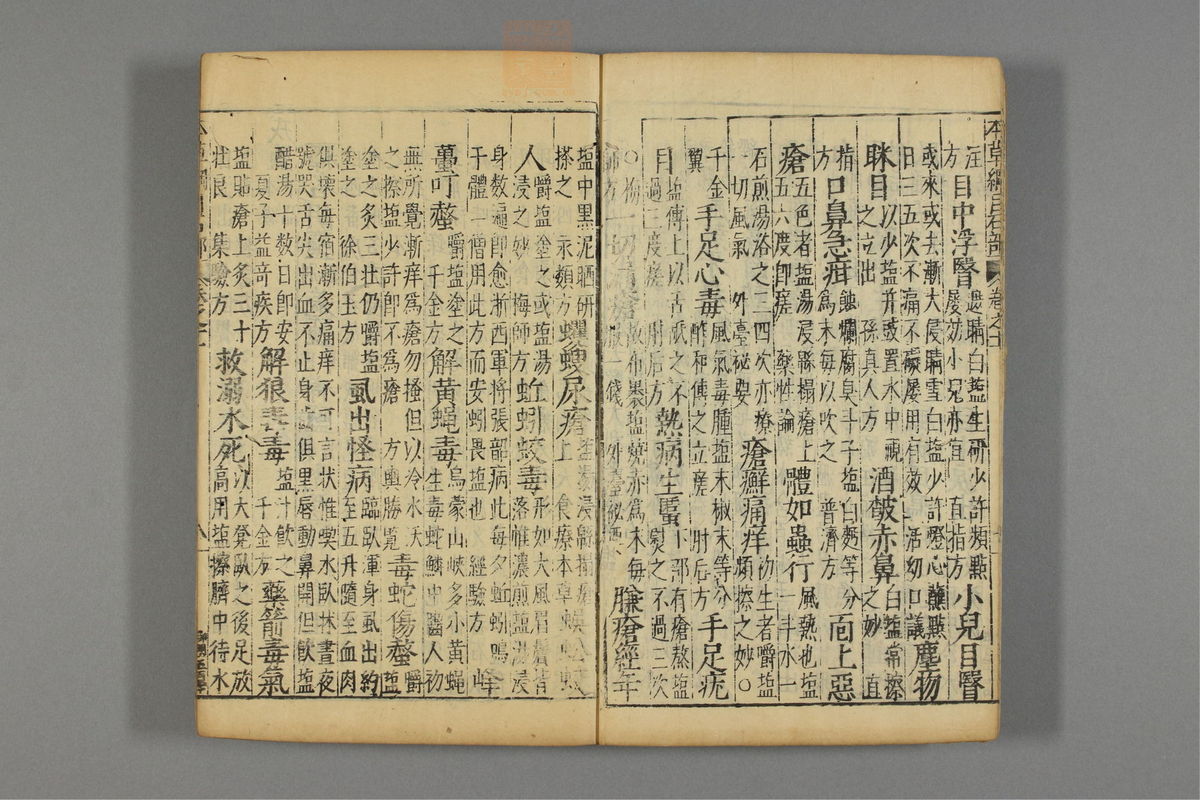 本草綱目石部 卷之十一
注方 目中浮瞖 遮睛白塩生研少許頻點屢効小兒亦宜 直指方 小兒目瞖
或來或去漸大侵睛雪白塩少許燈心蘸點日三五次不痛不礙屢用有效 活幼口議 塵物
眯目 以少塩并豉置水中視之立出 孫真人方 酒皶赤鼻 白塩常擦之妙 直
指方 口鼻急疳 蝕爛腐臭斗子塩白麪等分爲末每以吹之 普濟方 面上惡
瘡 五色者塩湯浸綿搨瘡上五六度即瘥 藥性論 體如蟲行 風熱也塩一斗水一
石煎湯浴之三四次亦療一切風氣 外臺祕要 瘡癬痛痒 初生者嚼塩頻擦之妙〇
千金翼 手足心毒 風氣毒腫塩末椒末等分酢和傅之立瘥 肘后方 手足疣
目 塩傅上以舌䑛之不過三度瘥 肘后方 熱病生䘌 下部有瘡熬塩熨之不過三次
臁瘡經年
塩中黑泥晒研搽之 永類方 蠼螋尿瘡
人 嚼塩塗之或塩湯浸之妙 梅師方 蚯蚓咬毒 形如大風眉鬢皆落惟濃煎塩湯浸
身數遍即愈浙西軍將張韶病此每夕蚯蚓鳴于體一僧用此方而安蚓畏塩也 經驗方 蜂
蠆叮螫 嚼塩塗之 千金方 解黄蠅毒 烏蒙山峽多小黄蠅生毒蛇鱗中囓人初
無所覺漸痒爲瘡勿搔但以冷水沃之擦塩少許卽不爲瘡 方輿勝覽 毒蛇傷螫 嚼塩
塗之灸三壮仍嚼塩塗之 徐伯玉方 虱出怪病 臨臥渾身虱出約至五升隨至血肉
俱壞每宿漸多痛痒不可言状惟喫水臥牀晝夜號哭舌尖出血不止身齒俱黑唇動鼻開但飲塩
醋湯十数日卽安 夏子益竒疾方 解狼毒毒 塩汁飲之 千金方 藥箭毒氣
塩貼瘡上灸三十壮良 集驗方 救溺水死 以大凳臥之後足放高用塩擦臍中待水